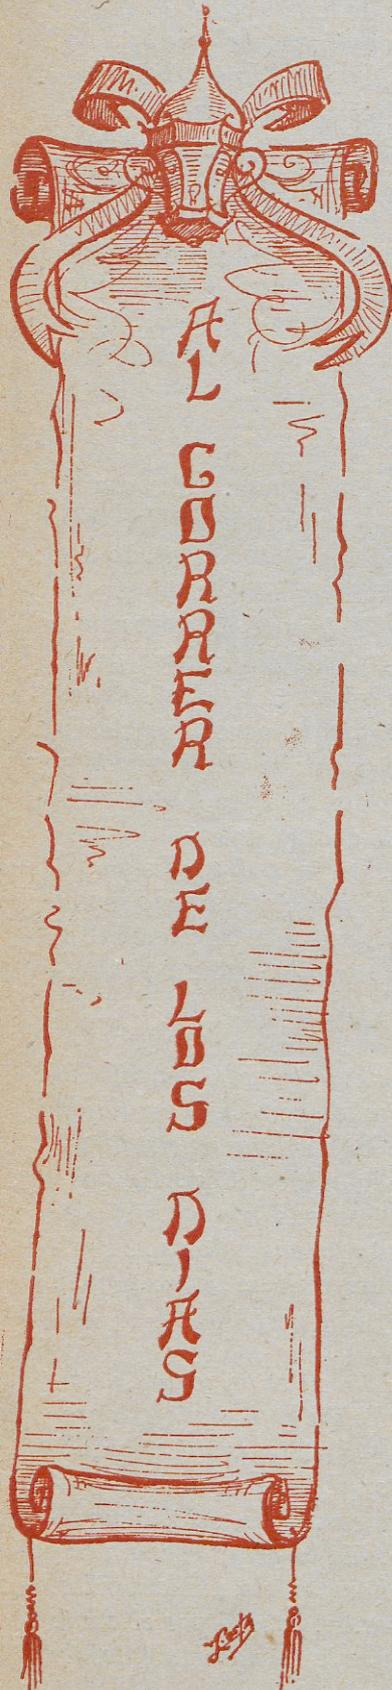 AL
CORRER
DE
LOS
DIAS